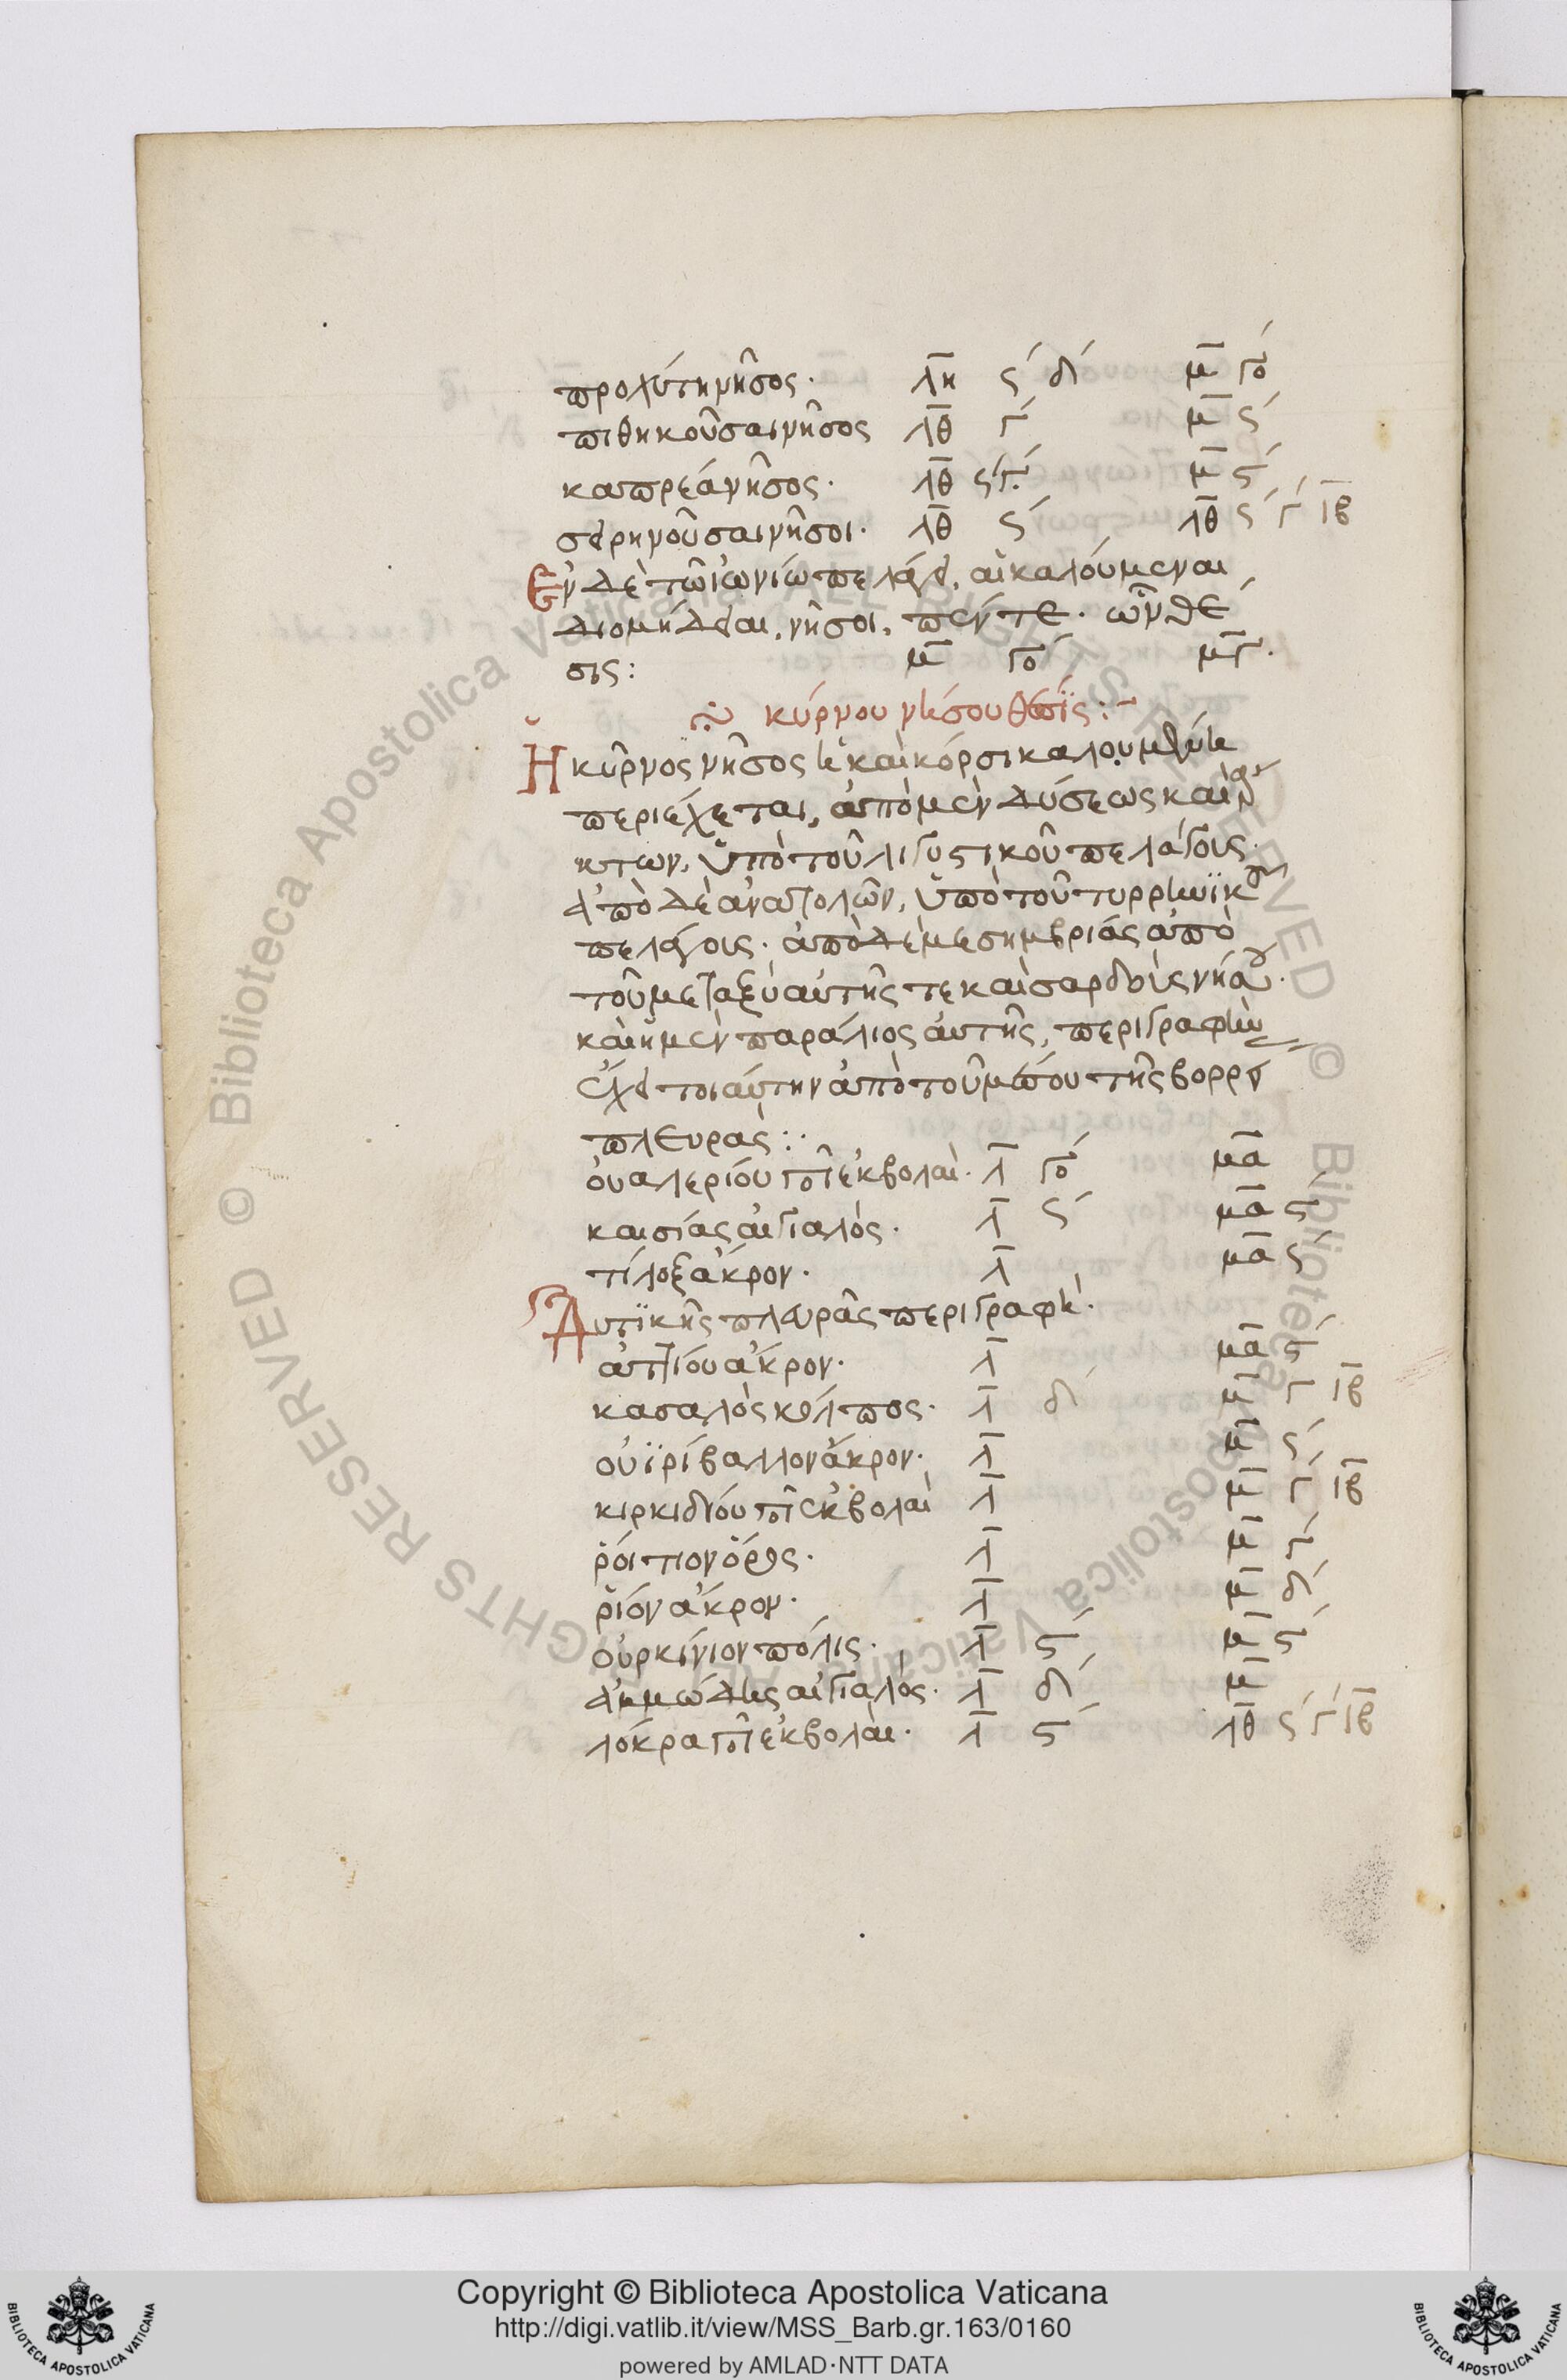 προχύτη νῆσος· λη ϛ´ δ´ μ γο´
πιθηκοῦσαι νῆσος λθ γ´ μ ϛ´
καπρέα νῆσος· λθ ϛ´ γ´ μ ϛ´
σειρηνοῦσαι νῆσοι· λθ ϛ´ λθ ϛ´ γ´ ιβ
Ἐν δὲ τῶ ἰωνίω πελάγει, αἱ καλούμεναι
διομήδειαι, νῆσοι, πέντε· ὧν θέ
σις: μ γο´ μγ·
κύρνου νήσου θέσις:
Ἡ κύρνος νῆσος ἡ καὶ κόρσι καλουμένη
περιέχεται, ἀπὸ μὲν δύσεως καὶ ἄρ
κτων, ὑπὸ τοῦ λιγυστικοῦ πελάγους·
ἀπὸ δὲ ἀνατολῶν, ὑπὸ τοῦ τυρρηνϊκοῦ
πελάγους· ἀπὸ δὲ μεσημβρίας ἀπὸ
τοῦ μεταξὺ αὐτῆς τε καὶ σαρδοῦς νήσου·
καὶ ἡ μὲν παράλιος αὐτῆς, περιγραφὴν
ἔχει τοιαύτην ἀπὸ τοῦ μέσου τῆς βορρείου
πλευρᾶς:·
οὐαλερίου ποτ ἐκβολαί· λ γο´ μα
καισίας αἰγιαλός· λ ϛ´ μα ϛ´
τίλοξ ἄκρον· λ μα ϛ´
Δυτϊκῆς πλευρᾶς περιγραφή·
ἀττίου ἄκρον· λ μα ϛ´
κασαλὸς κόλπος· λ δ´ μ γ´ ιβ
οὐϊρίβαλλον ἄκρον· λ μ ϛ´
κιρκιδίου ποτ ἐκβολαί λ μ γ´ ιβ
ῥοίτιον ὄρος· λ μ γ´
ῥίον ἄκρον· λ μ δ´
οὐρκίνιον πόλις· λ ϛ´ μ ϛ´
ἀμμώδης αἰγιαλός· λ δ´ μ
λόκρα ποτ ἐκβολαί· λ ϛ´ λθ ϛ´ γ´ ιβ
Copyright © Biblioteca Apostolica Vaticana
http://digi.vatlib.it/view/MSS_Barb.gr.163/0160
powered by AMLAD·NTT DATA